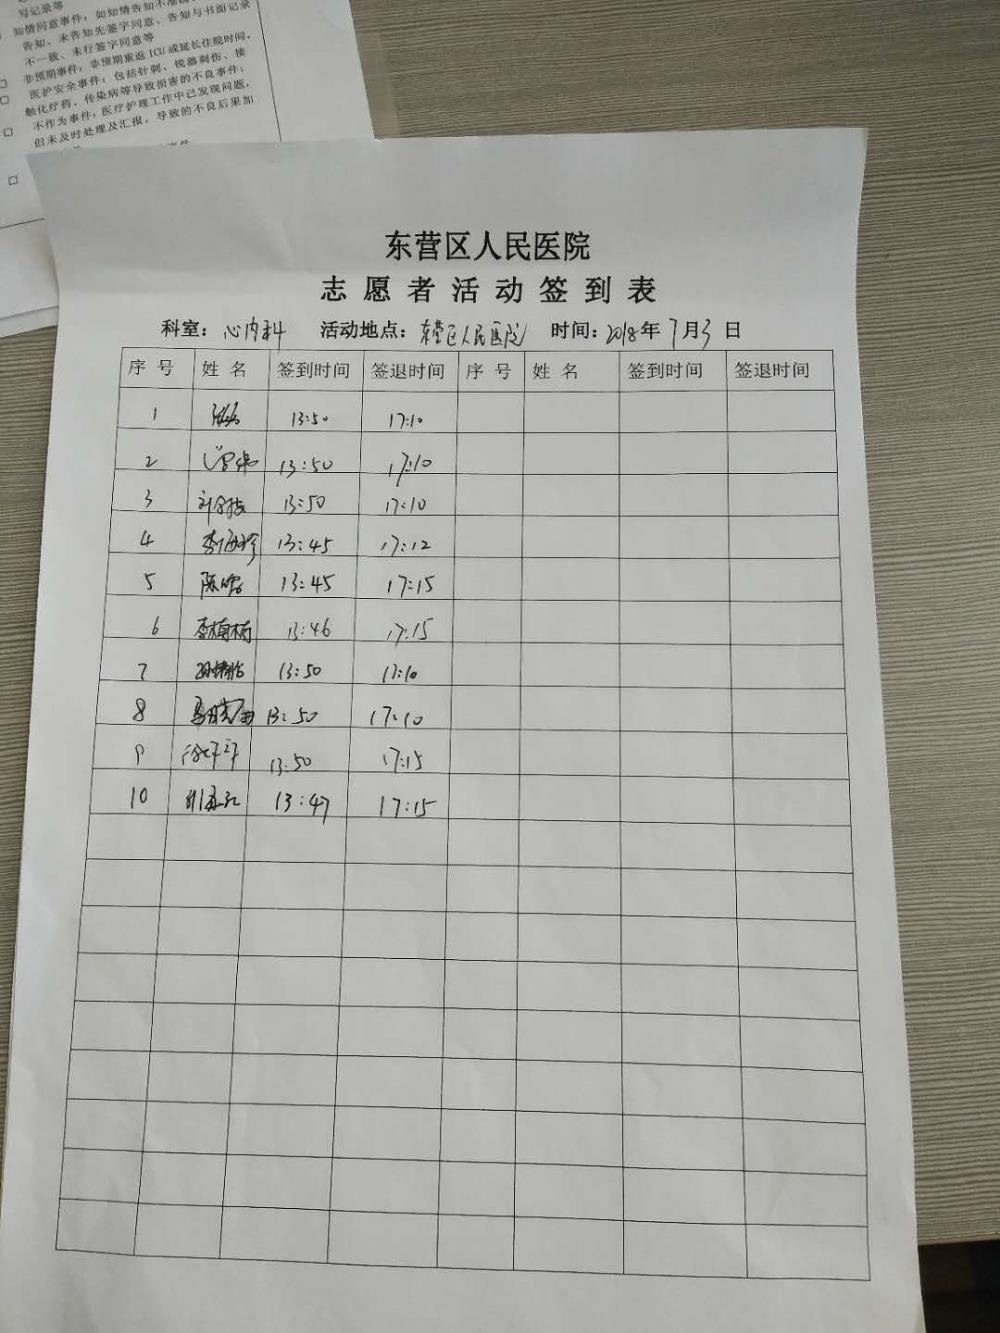 写记录等
知情同意事件：如知情告知不准确
告知、未告知先签字同意、告知与书面记录
不一致、未行签字同意等
□ 非预期事件：非预期重返 ICU 或延长住院时间，
□ 医护安全事件：包括针刺、锐器刺伤、接
触化疗药、传染病等导致损害的不良事件；
□ 不作为事件：医疗护理工作中已发现问题，
但未及时处理及汇报，导致的不良后果加
□
东营区人民医院
志愿者活动签到表
科室：心内科 活动地点：东营区人民医院 时间：2018年7月3日
序号 姓名 签到时间 签退时间 序号 姓名 签到时间 签退时间
1 13:50 17:10
2 13:50 17:10
3 13:50 17:10
4 13:45 17:12
5 陈 13:45 17:15
6 李楠楠 13:46 17:15
7 13:50 17:10
8 13:50 17:10
9 13:50 17:15
10 13:47 17:15